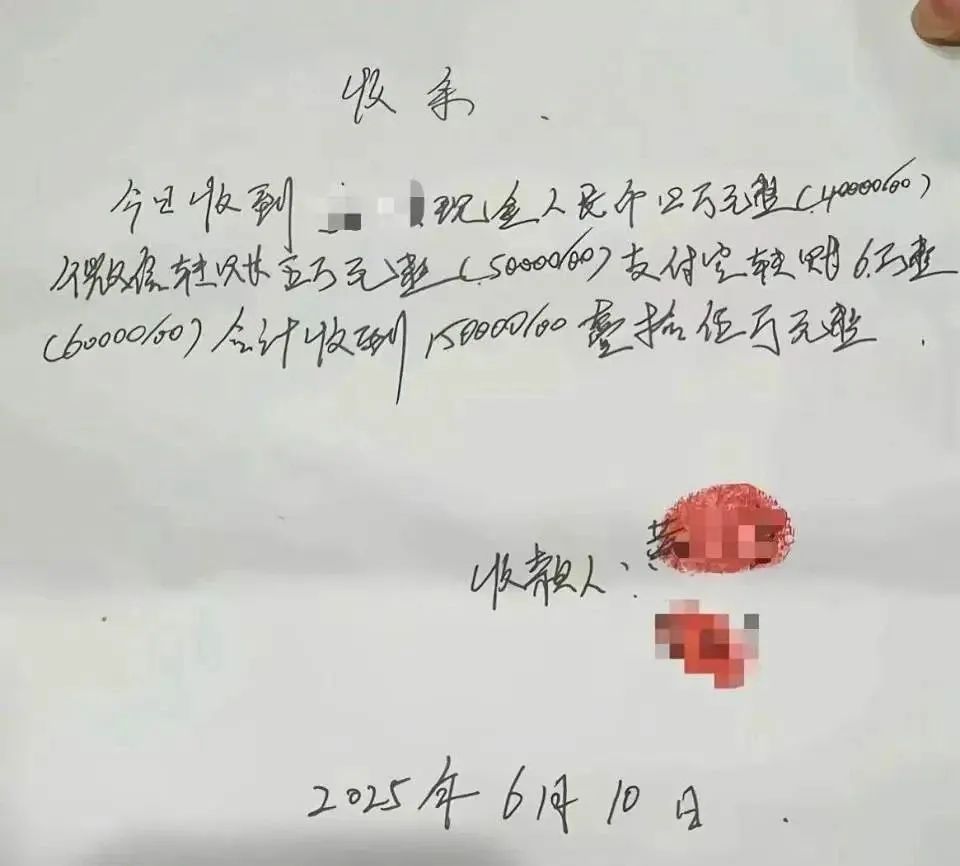 收条.
今日收到 现金人民币四万元整(40000/00)
微信转账共五万元整(50000/00)支付宝转账6万整
(60000/00)合计收到150000/00壹拾伍万元整.
收款人: 黄
2025年6月10日.